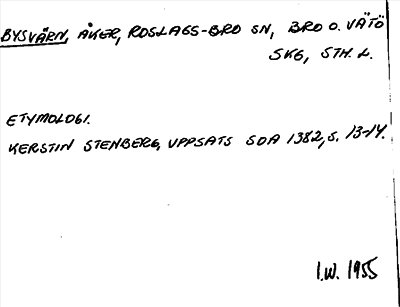 BYSVÄRN, ÅKER, ROSLAGS-BRO SN, BRO O. VÄTÖ
SKG, STH. L.
ETYMOLOGI.
KERSTIN STENBERG, UPPSATS SOA 1382, S. 13-14.
I.W. 1955